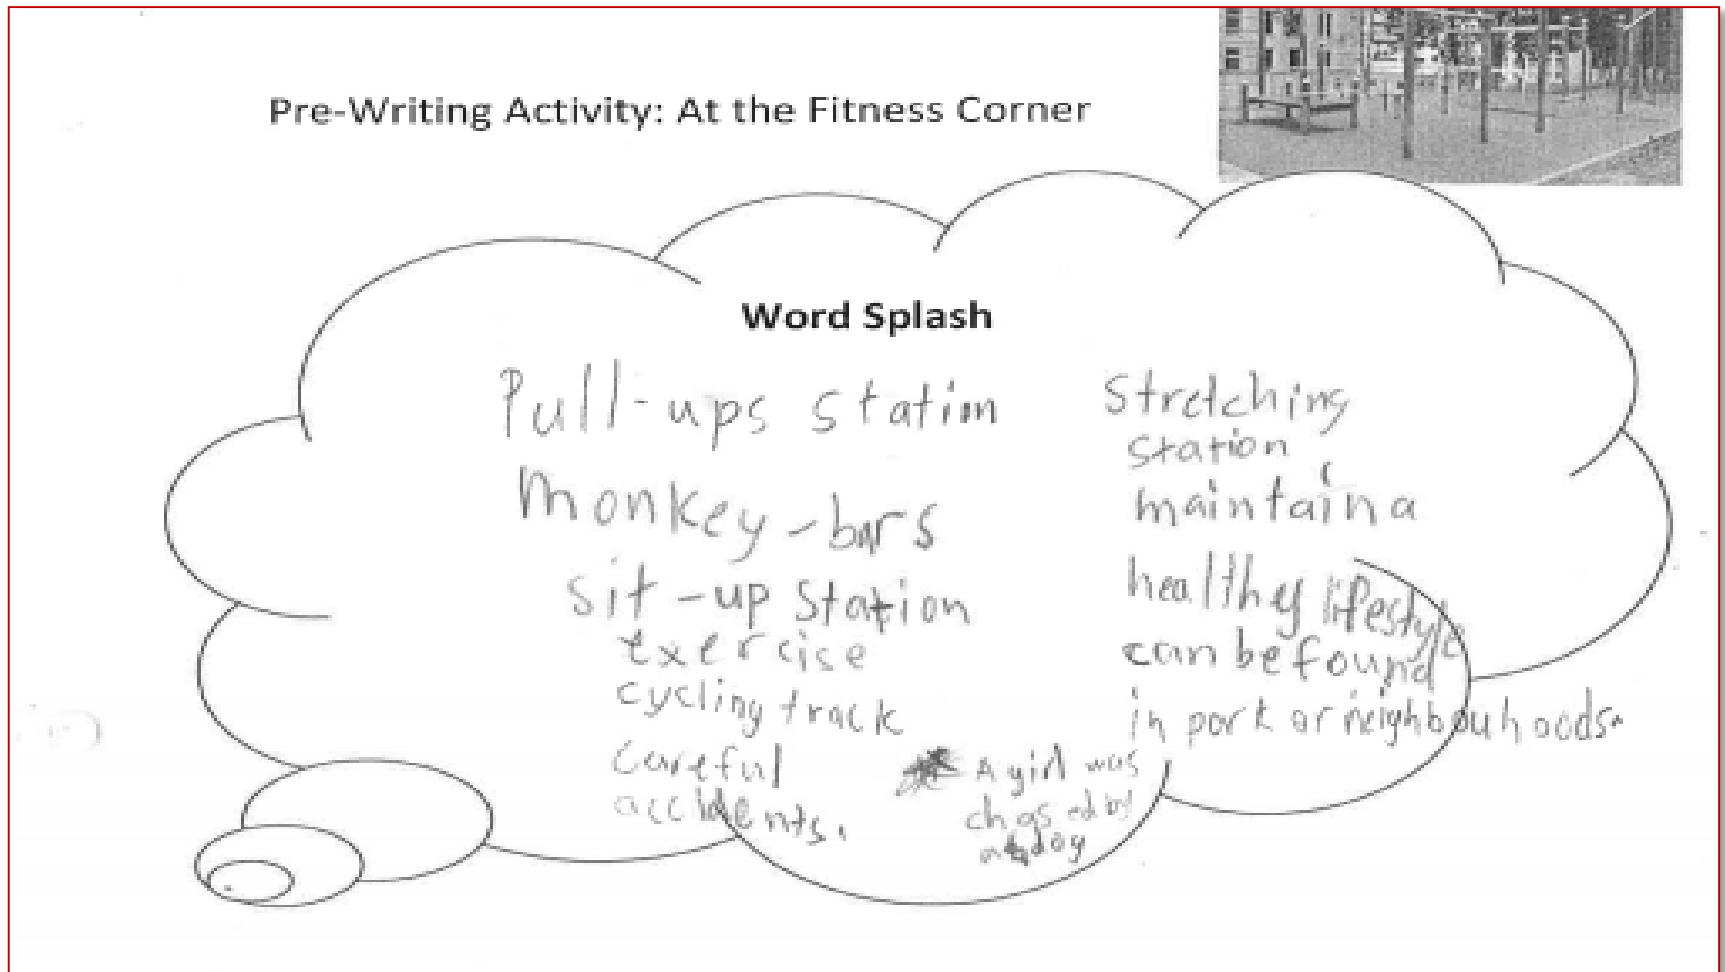 Pre-Writing Activity: At the Fitness Corner
Word Splash
Pull-ups station
Monkey-bars
sit-up station
exercise
cycling track
careful
accidents.
Stretching
station
maintain a
healthy lifestyle
can be found
in park or neighbouhoods.
A girl was
chased by
a dog